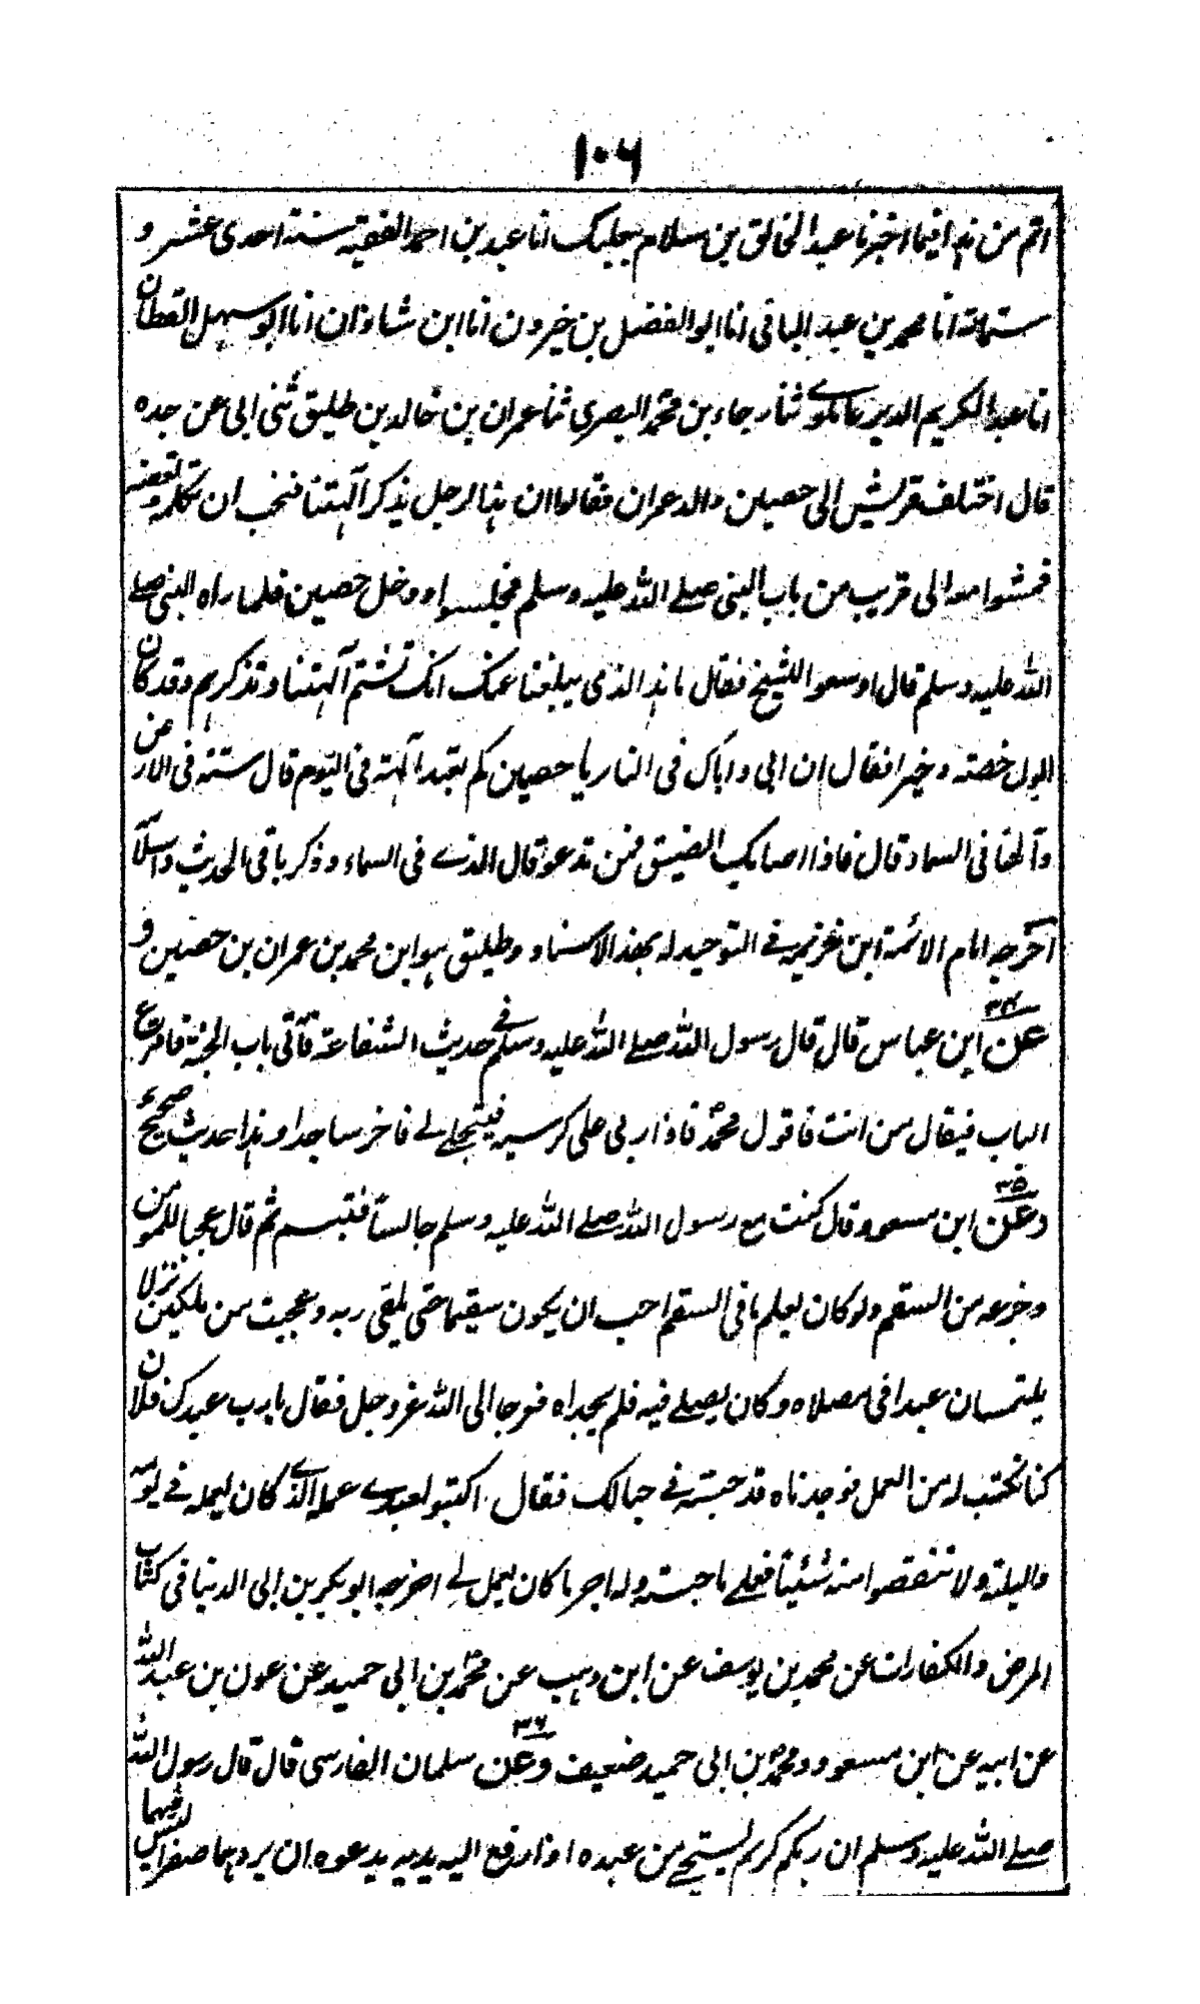 ١٠٦
اتم من هذا فيما اخبرنا عبد الخالق بن سلام ببعلبك انا عبد بن احمد الفقيه سنة احدى عشر و
ستمائة انا محمد بن عبد الباقى انا ابو الفضل بن خيرون انا ابن شاذان انا ابو سهل القطان
انا عبد الكريم الديرعاقولے ثنا رجاء بن محمد البصرى ثنا عمران بن خالد بن طليق ثنى ابى عن جده
قال اختلف قريش الى حصين والد عمران فقالوا ان هذا الرجل يذكر آلهتنا فنحب ان تكلمه و تعضه
فمشوا معه الى قريب من باب النبى صلے الله عليه وسلم فجلسوا ودخل حصين فلما راه النبى صلے
الله عليه وسلم قال اوسعوا للشيخ فقال ما هذا الذى يبلغنا عنك انك تشتم آلهتنا وتذكرهم وقد كان
ابوك خصته وخيرا فقال ان ابى واباك فى النار يا حصين كم تعبد الهة فى اليوم قال ستة فى الارض
وآلها فى السماء قال فاذا اصابك الضيق فمن تدعو قال الذے فى السماء وذكر باقى الحديث واسلامه
اخرجه امام الائمة ابن خزيمة فے التوحيد له بهذا الاسناد وطليق هو ابن محمد بن عمران بن حصين و
٣٤ عن ابن عباس قال قال رسول الله صلے الله عليه وسلم فے حديث الشفاعة فآتى باب الجنة فاقرع
الباب فيقال من انت فاقول محمد فاذا ربى على كرسيه فيتجلے لے فاخر ساجدا وهذا حديث صحيح
٣٥ وعن ابن مسعود قال كنت مع رسول الله صلے الله عليه وسلم جالساً فتبسم ثم قال عجبا للمؤمن
وجزعه من السقم ولو كان يعلم ما فى السقم احب ان يكون سقيما حتى يلقى ربه وعجبت من ملكين نزلا
يلتمسان عبدا فى مصلاه وكان يصلے فيه فلم يجداه فعرجا الى الله عز وجل فقال يا رب عبدك فلان
كنا نكتب له من العمل فوجدناه قد حبسته فے حبالك فقال اكتبو لعبدے عمله الذے كان يعمله فے يومه
والليلة ولا تنقصوا منه شيئاً فعلے ما حبسته وله اجر ما كان يعمل لے اخرجه ابو بكر بن ابى الدنيا فى كتاب
المرض والكفارات عن محمد بن يوسف عن ابن وهب عن محمد بن ابى حميد عن عون بن عبد الله
عن ابيه عن ابن مسعود ومحمد بن ابى حميد ضعيف ٣٦ وعن سلمان الفارسى قال قال رسول الله
صلے الله عليه وسلم ان ربكم كريم يستحے من عبده اذا رفع اليه يديه يدعوه ان يردهما صفرا ليس فيهما